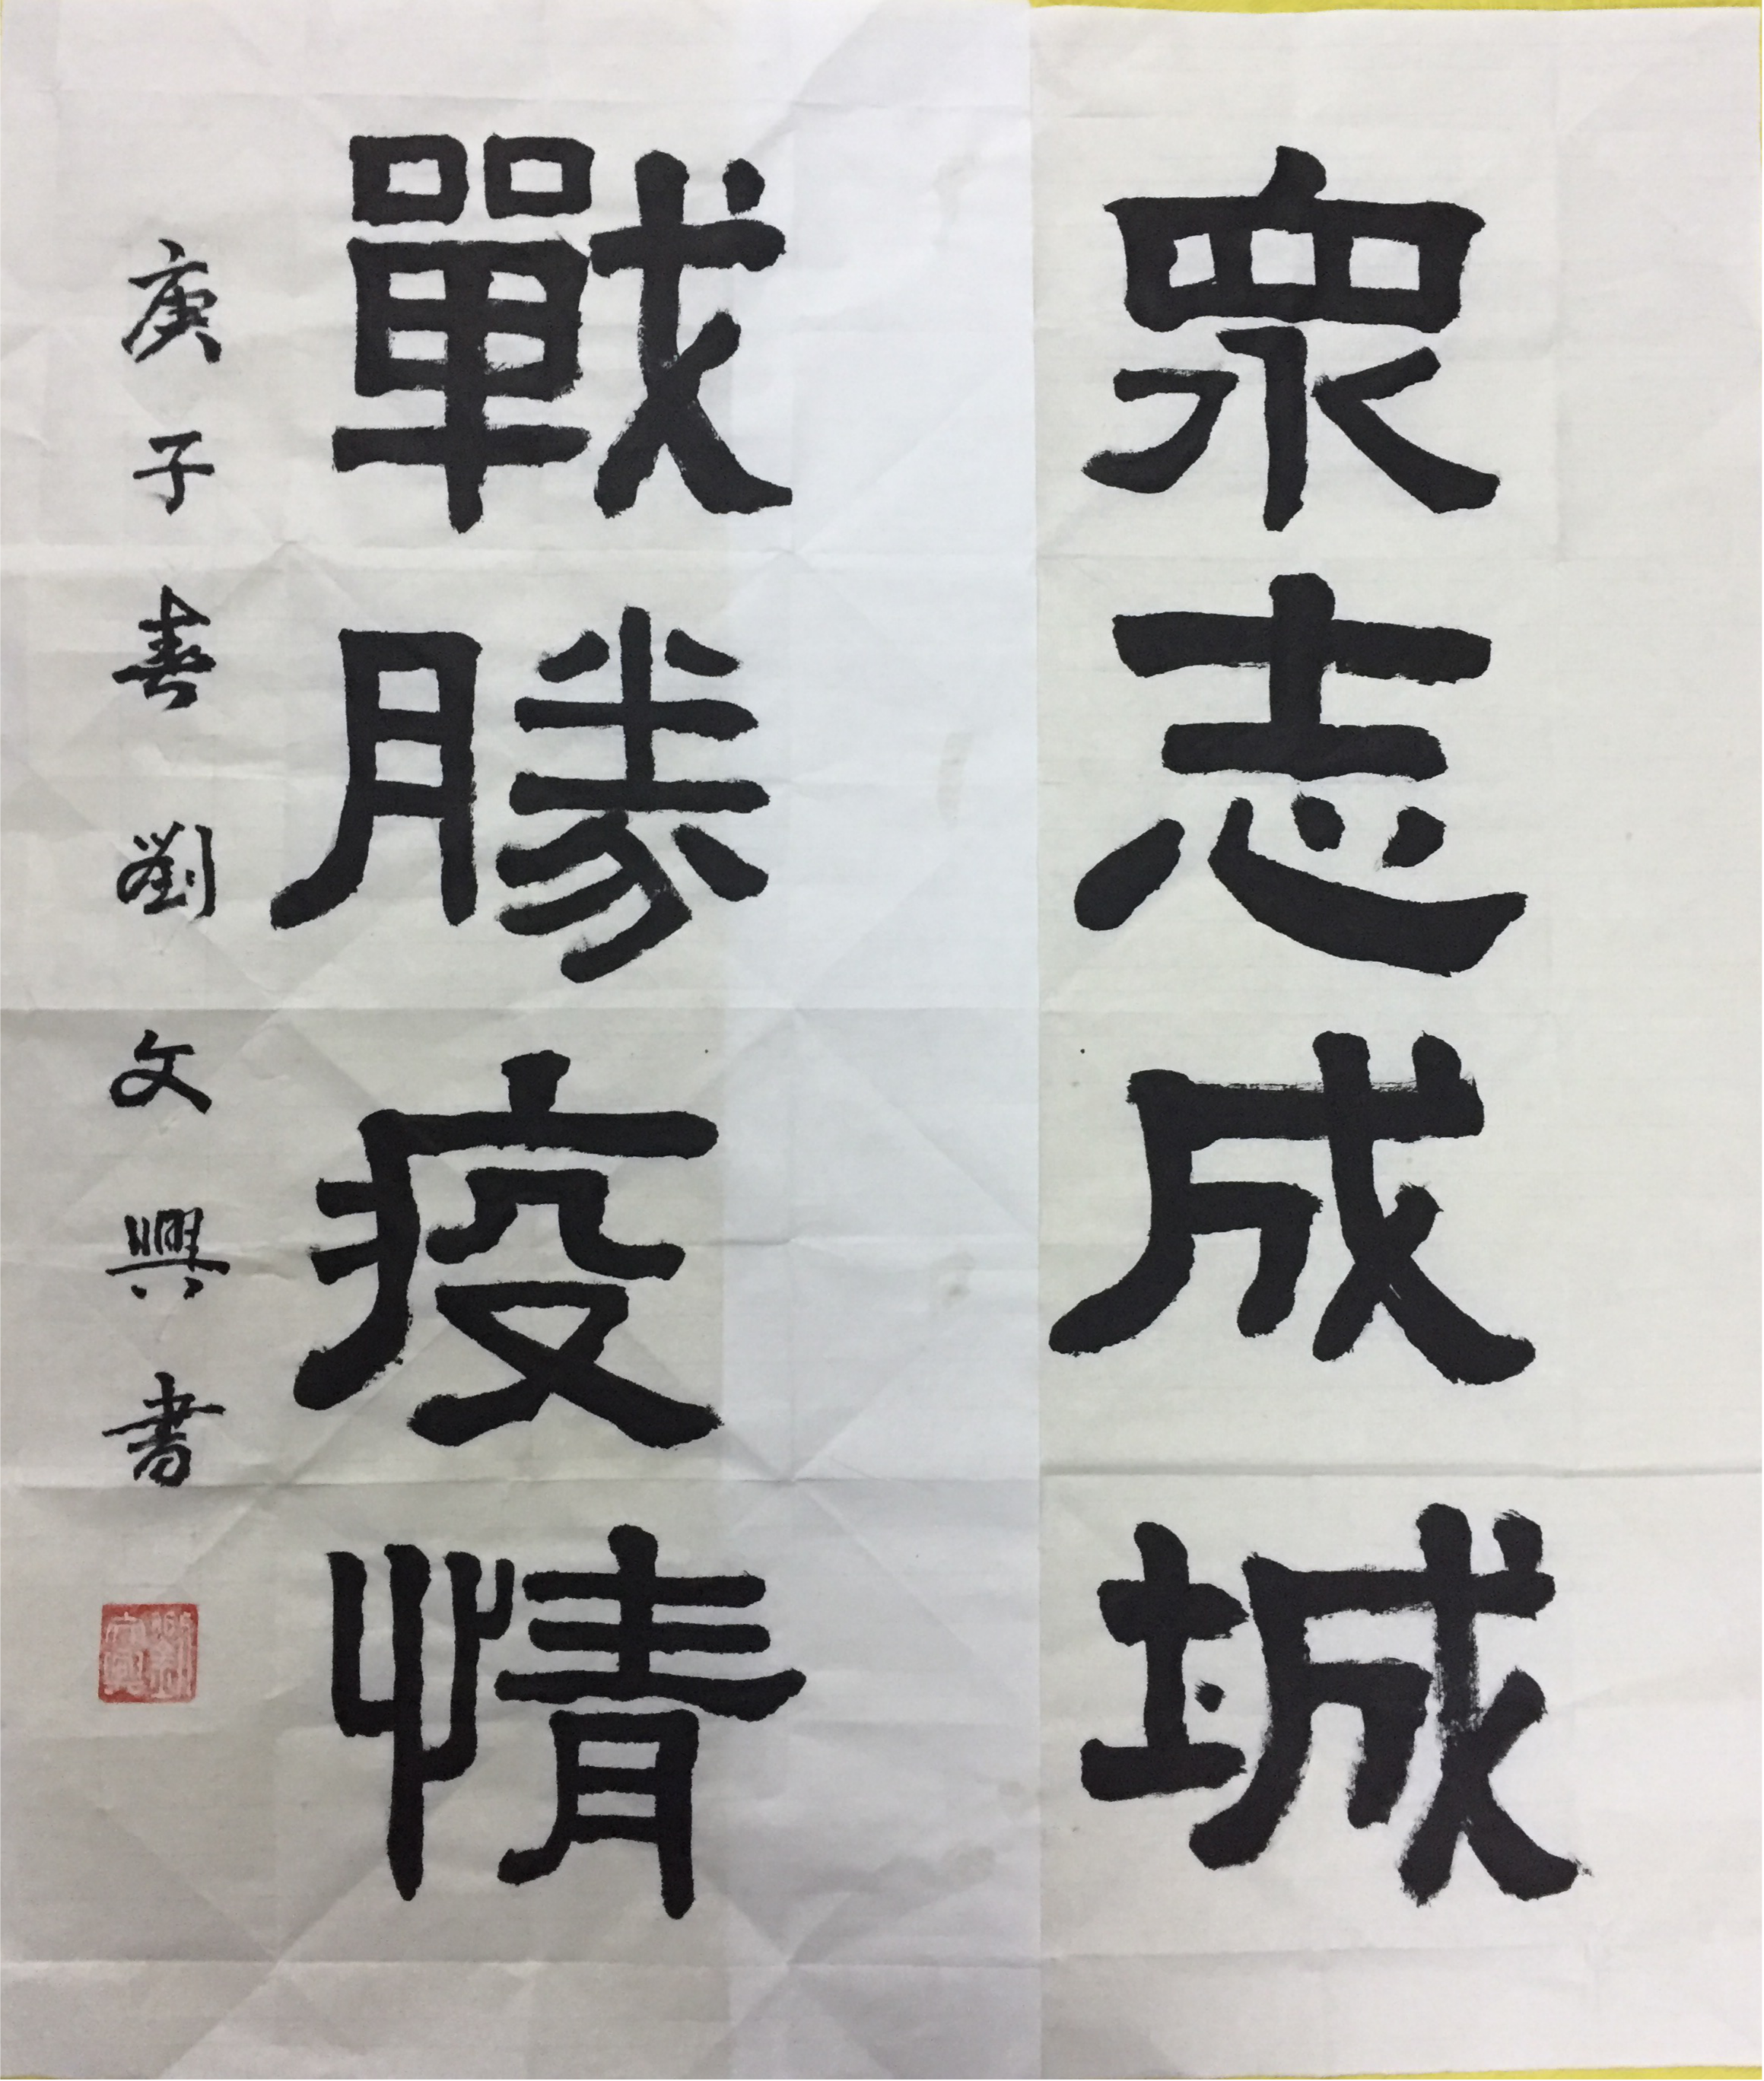 眾志成城
戰勝疫情
庚子春劉文興书